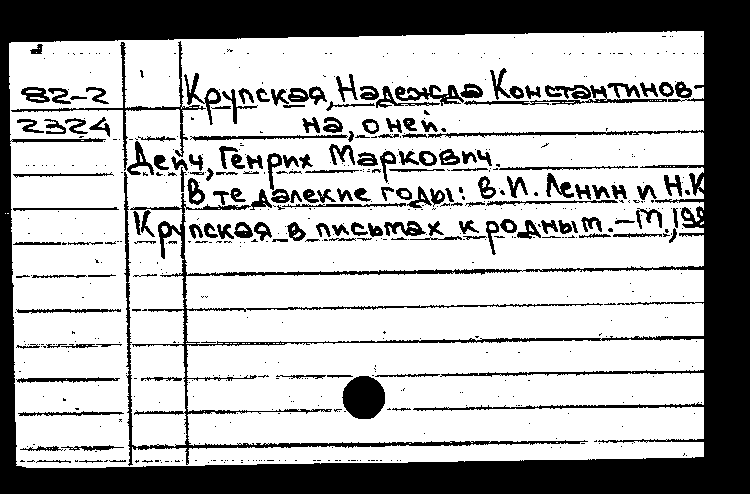 82-2 Крупская, Надежда Константинов-
2324 на, о ней.
Дейч, Генрих Маркович.
В те далекие годы: В.И. Ленин и Н.К
Крупская в письмах к родным. – М.,